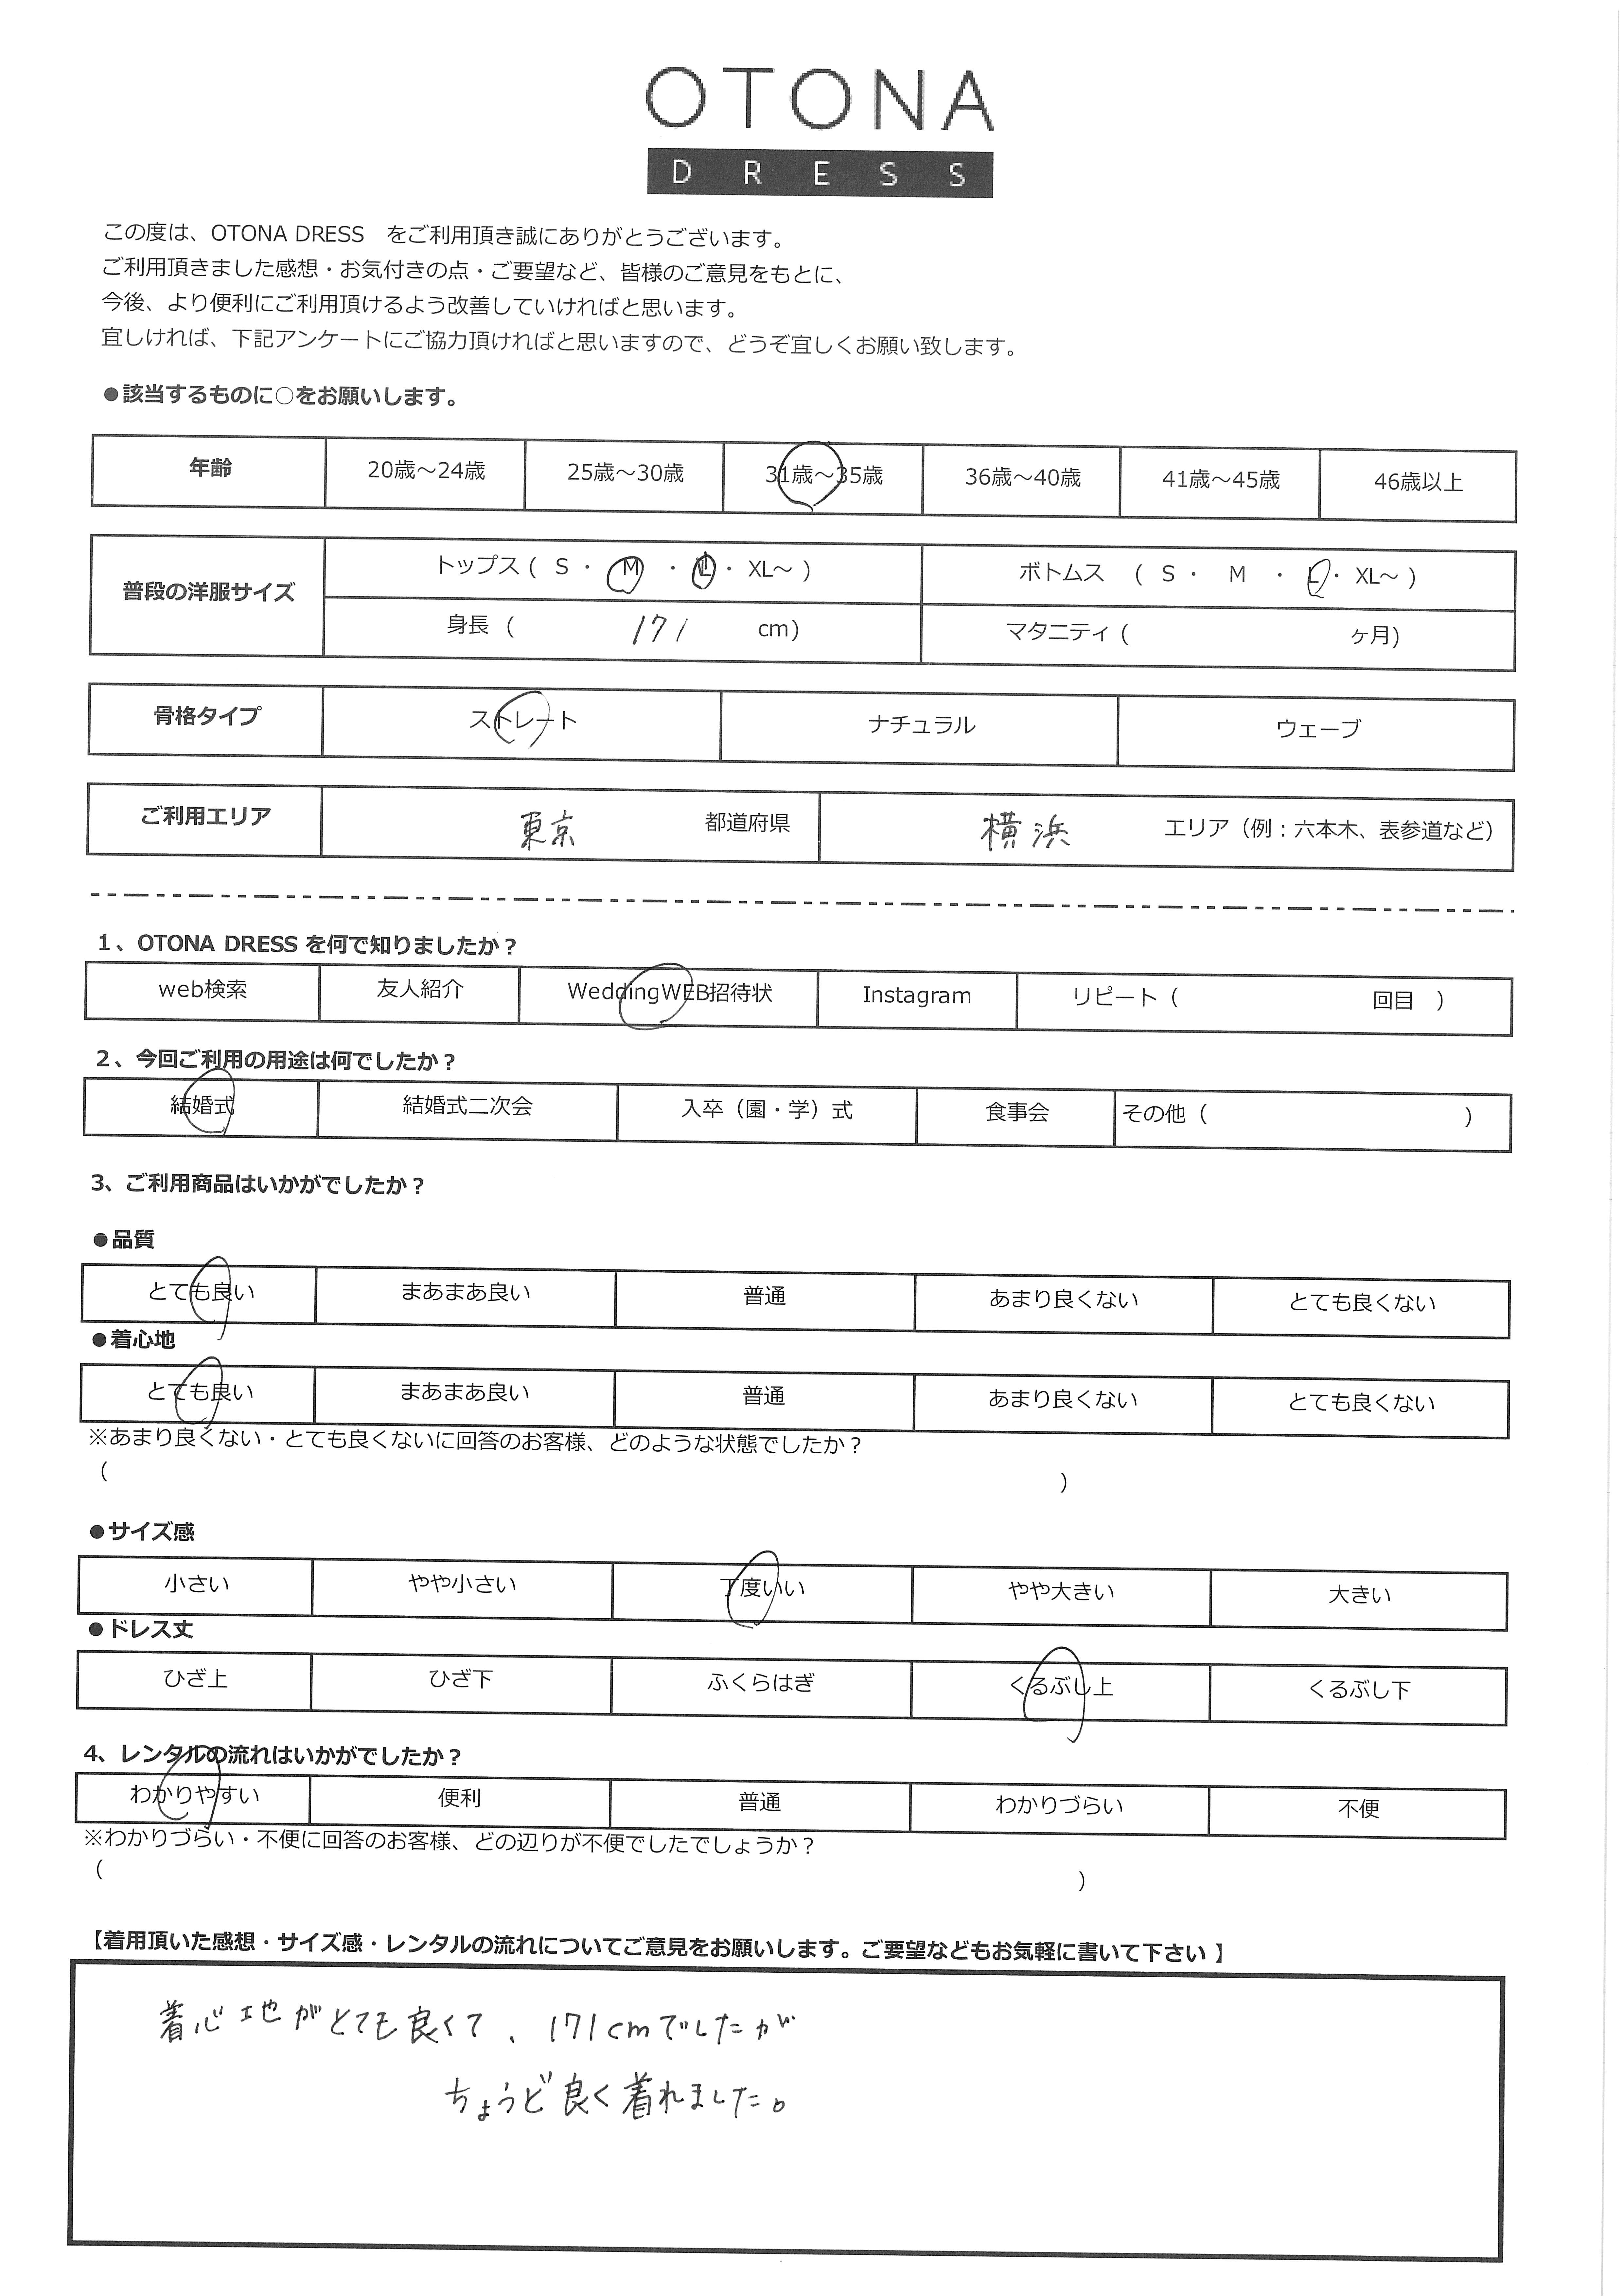 OTONA
DRESS
この度は、OTONA DRESS　をご利用頂き誠にありがとうございます。
ご利用頂きました感想・お気付きの点・ご要望など、皆様のご意見をもとに、
今後、より便利にご利用頂けるよう改善していければと思います。
宜しければ、下記アンケートにご協力頂ければと思いますので、どうぞ宜しくお願い致します。
●該当するものに○をお願いします。
年齢 20歳～24歳 25歳～30歳 31歳～35歳 36歳～40歳 41歳～45歳 46歳以上
普段の洋服サイズ トップス ( S ・ M ・ L ・ XL～ ) ボトムス ( S ・ M ・ L ・ XL～ )
身長 ( 171 cm) マタニティ ( ヶ月)
骨格タイプ ストレート ナチュラル ウェーブ
ご利用エリア 東京 都道府県 横浜 エリア（例：六本木、表参道など）
1、OTONA DRESS を何で知りましたか？
web検索 友人紹介 WeddingWEB招待状 Instagram リピート（ 回目 ）
2、今回ご利用の用途は何でしたか？
結婚式 結婚式二次会 入卒（園・学）式 食事会 その他（ ）
3、ご利用商品はいかがでしたか？
●品質
とても良い まあまあ良い 普通 あまり良くない とても良くない
●着心地
とても良い まあまあ良い 普通 あまり良くない とても良くない
※あまり良くない・とても良くないに回答のお客様、どのような状態でしたか？
( )
●サイズ感
小さい やや小さい 丁度いい やや大きい 大きい
●ドレス丈
ひざ上 ひざ下 ふくらはぎ くるぶし上 くるぶし下
4、レンタルの流れはいかがでしたか？
わかりやすい 便利 普通 わかりづらい 不便
※わかりづらい・不便に回答のお客様、どの辺りが不便でしたでしょうか？
( )
【着用頂いた感想・サイズ感・レンタルの流れについてご意見をお願いします。ご要望などもお気軽に書いて下さい 】
着心地がとても良くて、171cmでしたが
ちょうど良く着れました。